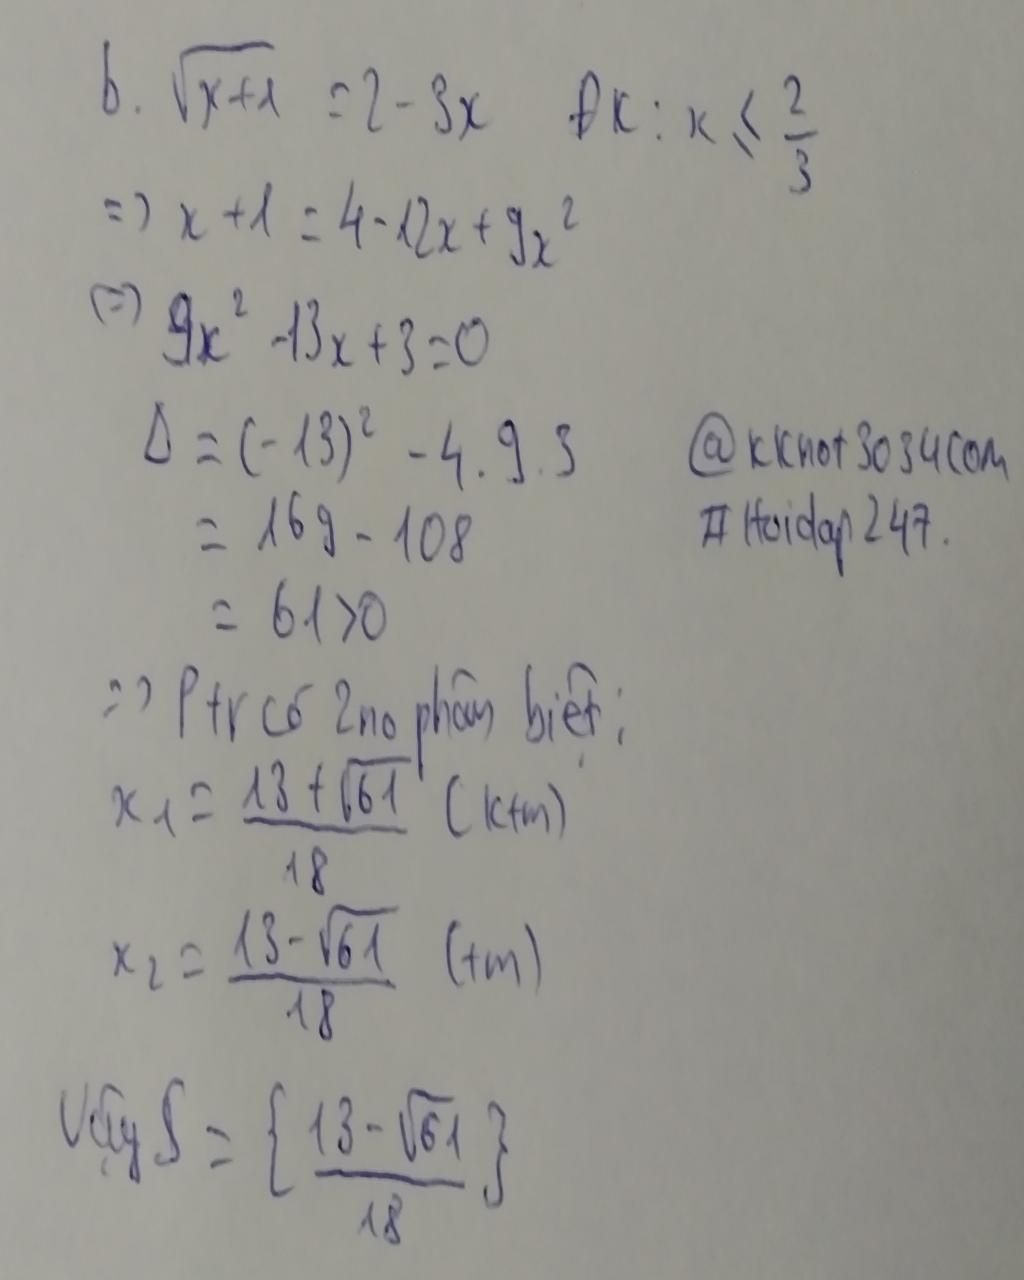 b. √x+1 = 2 - 3x ĐK : x ≤ 2/3
=> x + 1 = 4 - 12x + 9x²
(=) 9x² - 13x + 3 = 0
Δ = (-13)² - 4 . 9 . 3
= 169 - 108
= 61 > 0
@kknot3034com
#Hoidap247.
=> Ptr có 2 no phân biệt :
x1 = 13 + √61 / 18 (ktm)
x2 = 13 - √61 / 18 (tm)
Vậy S = { 13 - √61 / 18 }